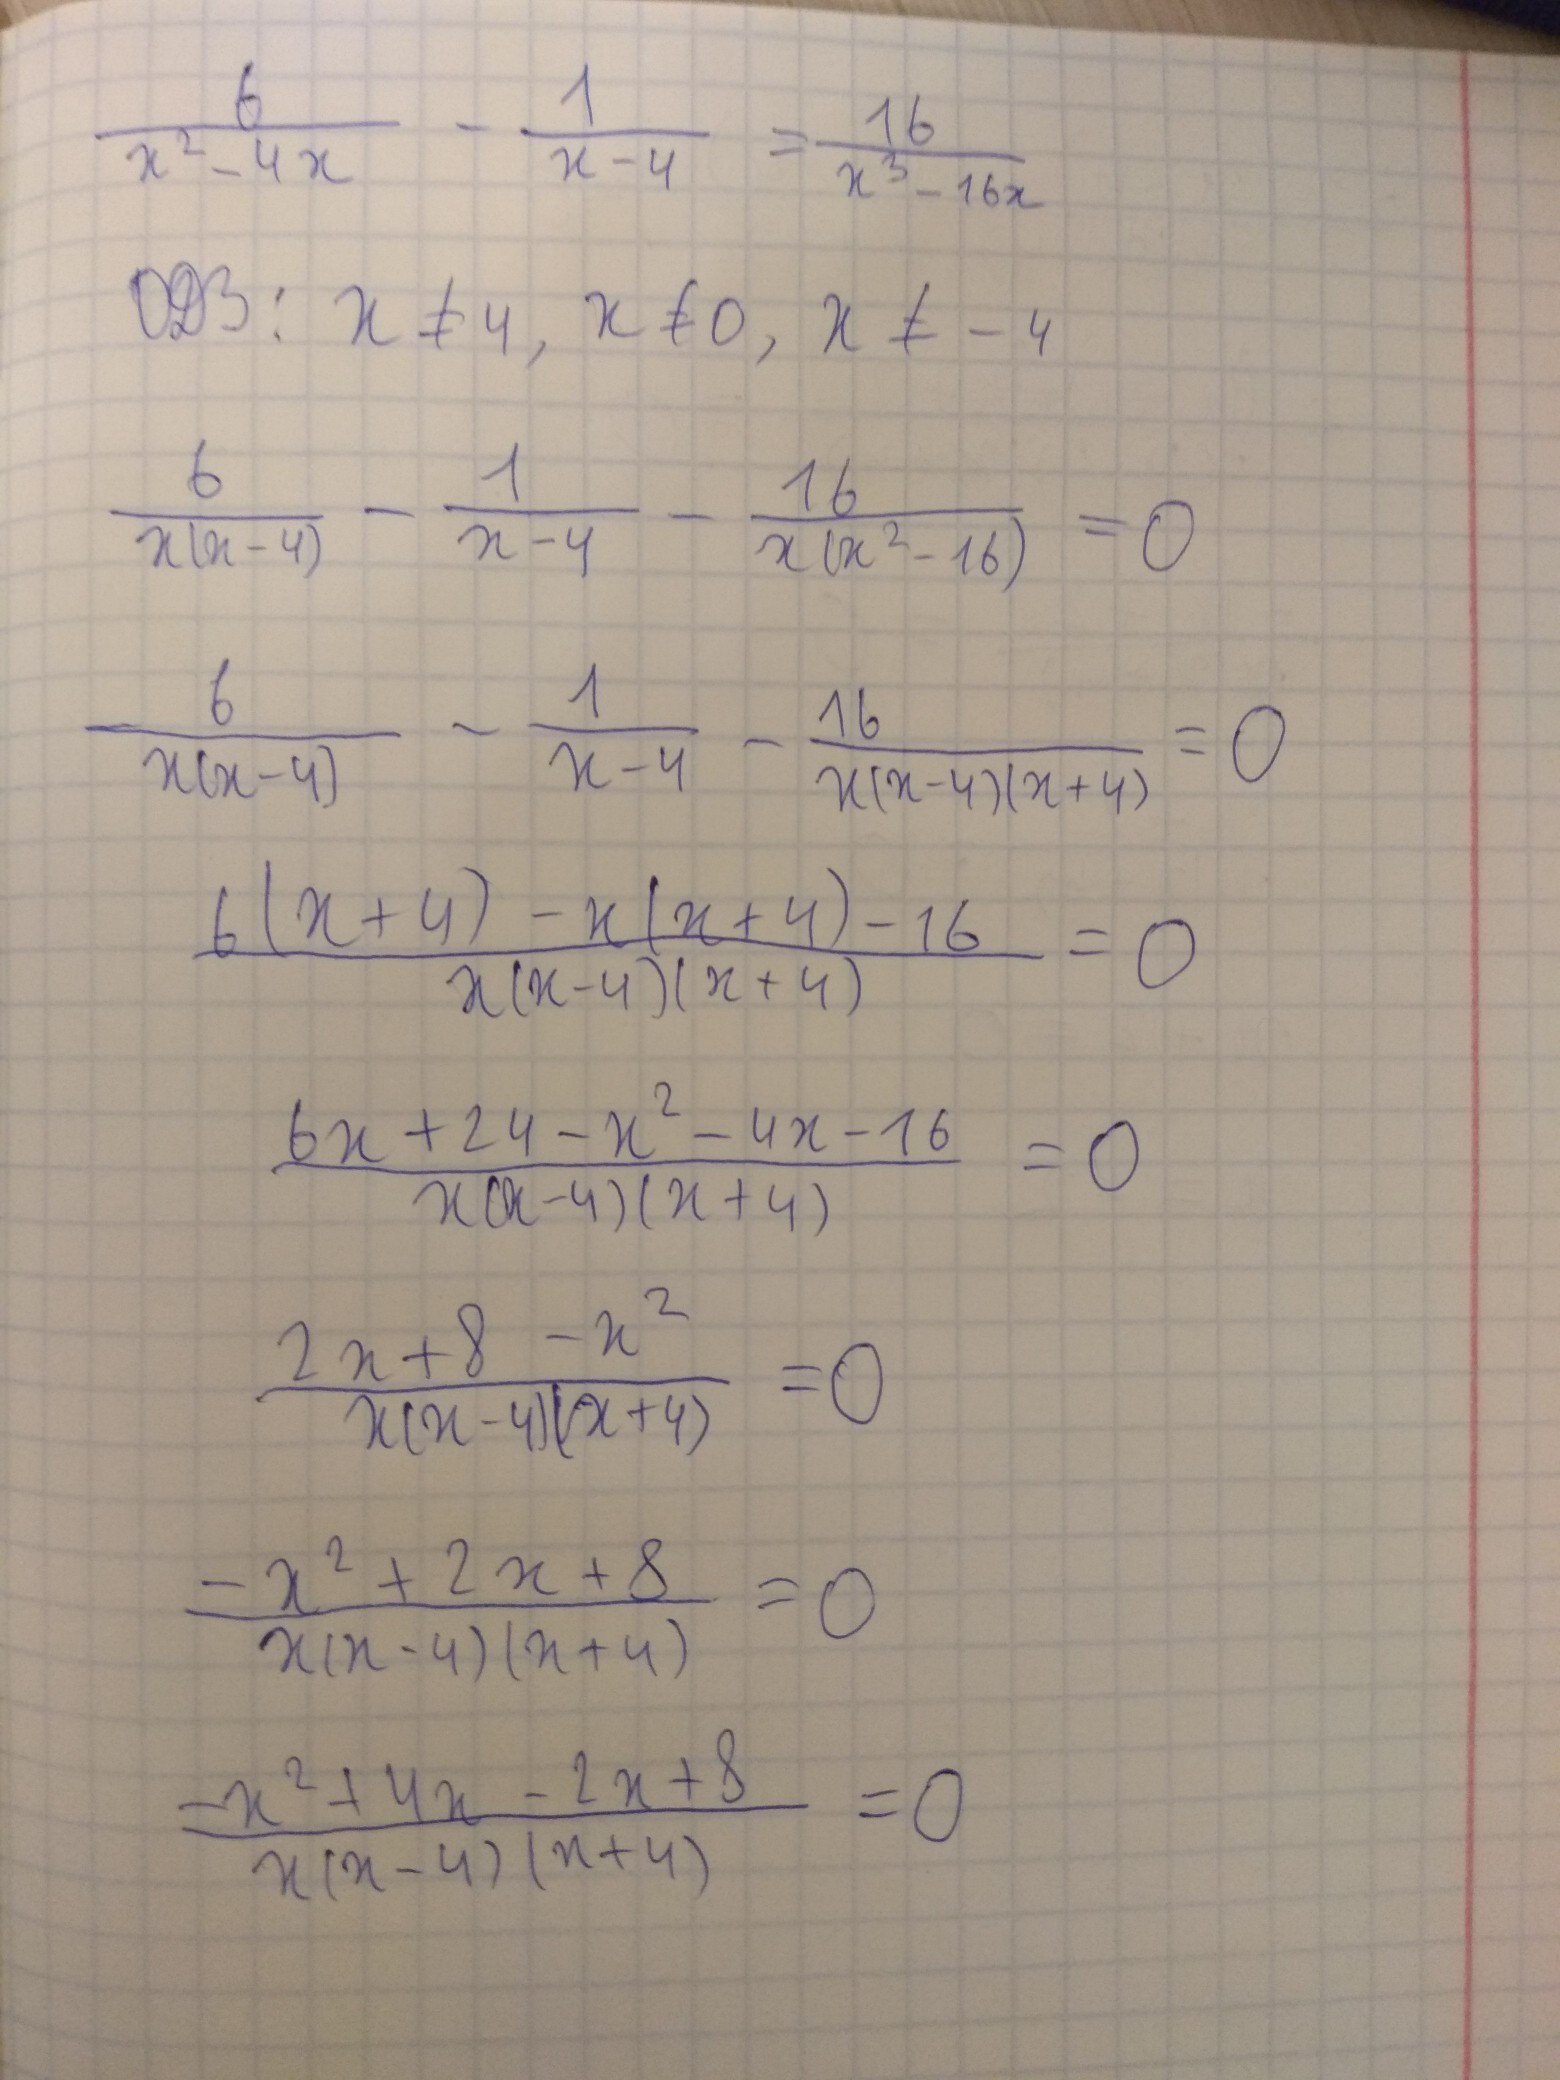 6/(x² - 4x) - 1/(x - 4) = 16/(x³ - 16x)
ОДЗ: x ≠ 4, x ≠ 0, x ≠ - 4
6/(x(x - 4)) - 1/(x - 4) - 16/(x(x² - 16)) = 0
6/(x(x - 4)) - 1/(x - 4) - 16/(x(x - 4)(x + 4)) = 0
(6(x + 4) - x(x + 4) - 16)/(x(x - 4)(x + 4)) = 0
(6x + 24 - x² - 4x - 16)/(x(x - 4)(x + 4)) = 0
(2x + 8 - x²)/(x(x - 4)(x + 4)) = 0
(-x² + 2x + 8)/(x(x - 4)(x + 4)) = 0
(-x² + 4x - 2x + 8)/(x(x - 4)(x + 4)) = 0